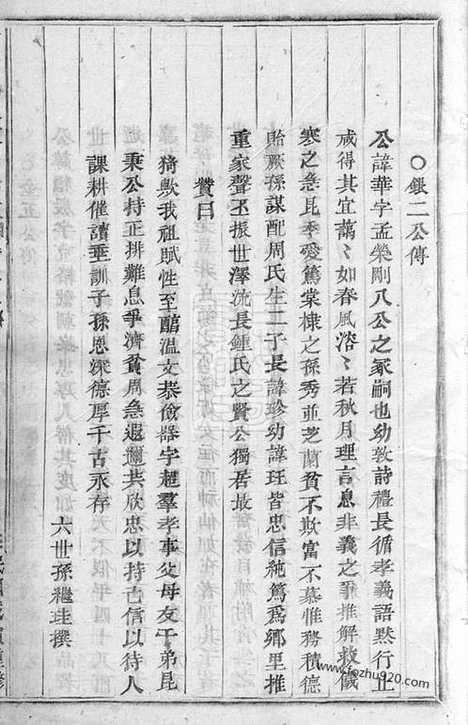 ○銀二公傳
公諱華字孟榮剛八公之冢嗣也幼敦詩禮長循孝義語黙行止
咸得其宜藹〻如春風溶〻若秋月理言息非義之爭推解救饑
寒之急昆季愛篤棠棣之孫秀並芝蘭貧不欺富不慕惟務積德
貽厥孫謀配周氏生二子長諱珍幼諱玨皆忠信純篤爲鄉里推
重家聲丕振世澤流長鍾氏之賢公獨居最
贊曰
猗歟我祖賦性至醇溫文恭儉器宇超羣孝事父母友于弟昆
秉公持正排難息爭濟貧周急遐邇共欣忠以持己信以待人
課耕催讀垂訓子孫恩深德厚千古永存
六世孫繼珪撰
www.fozhu920.com